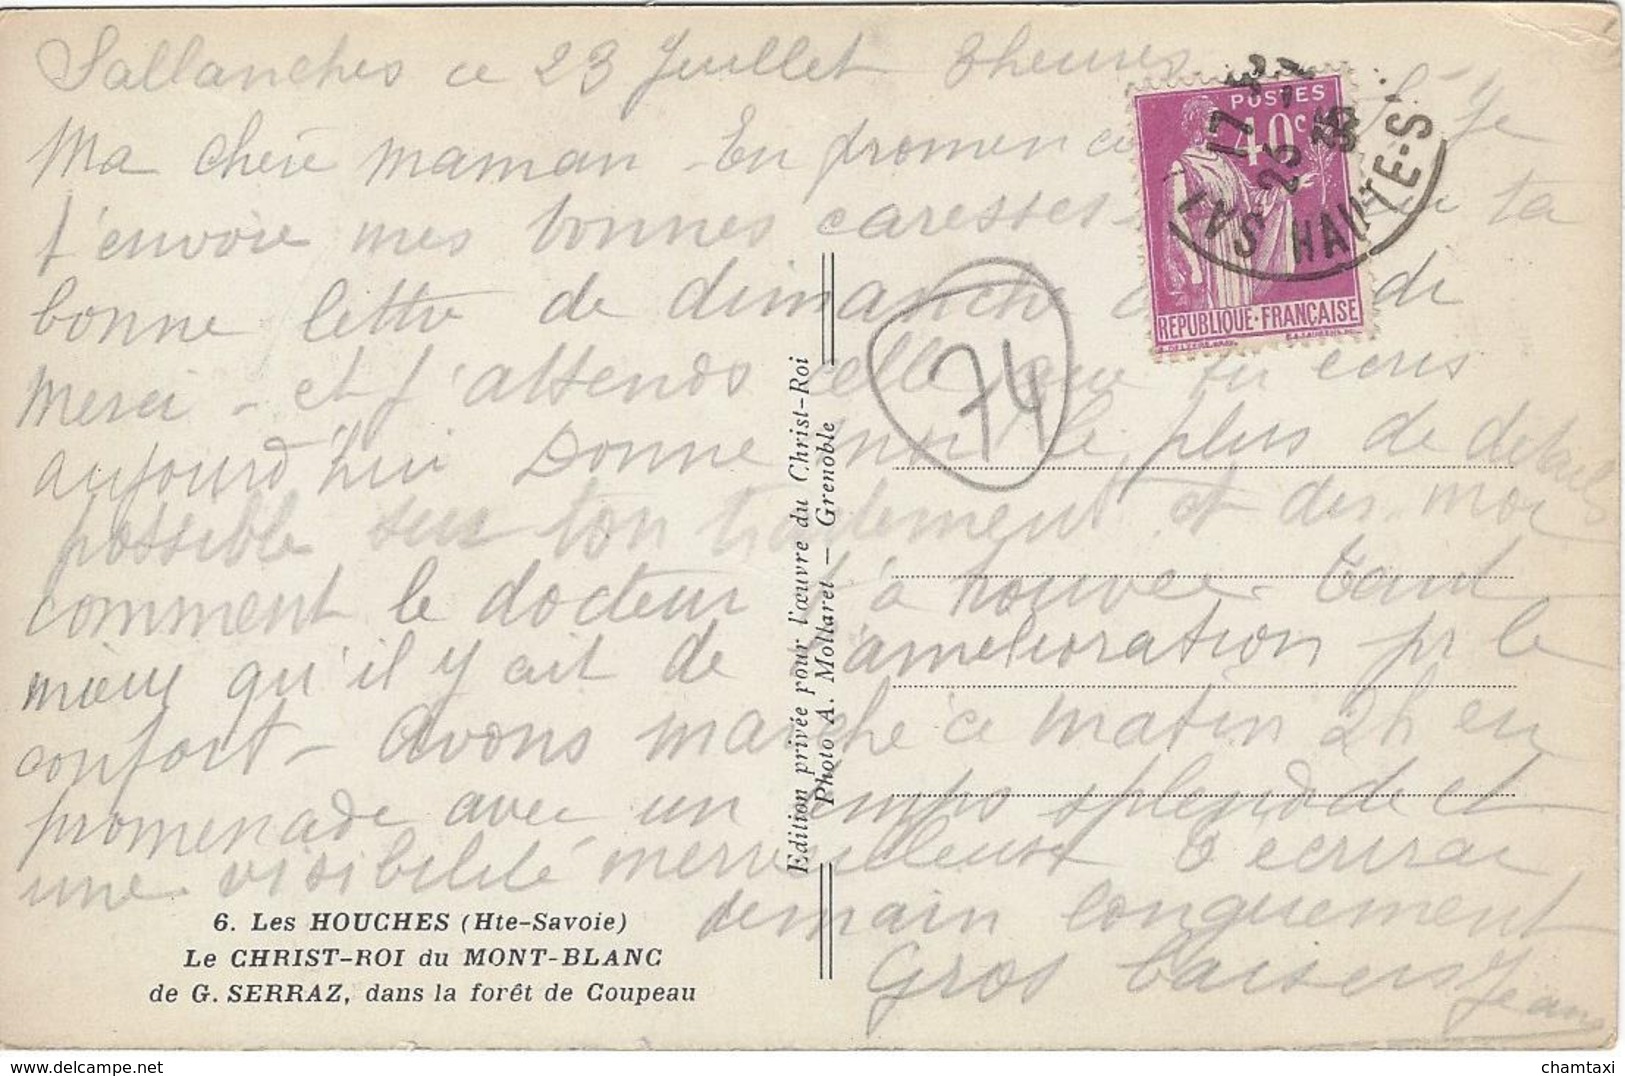 Sallanches ce 23 Juillet 8 heures
Ma chère maman - En promenade Je
t'envoie mes bonnes caresses. ta
bonne lettre de dimanche de
merci - et j'attends celle que tu écris
aujourd'hui Donne moi le plus de details
possible sur ton traitement et dis moi
comment le docteur t'a trouvée. tant
mieux qu'il y ait de l'amélioration pr le
confort - Avons marché ce matin 2h en
promenade avec un temps splendide et
une visibilité merveilleuse t'écrirai
demain longuement
Gros baisers
Jean
POSTES
40 c
REPUBLIQUE-FRANÇAISE
17
26
35
HAUTE-S
74
Edition privée pour l'œuvre du Christ-Roi
Photo A. Mollaret — Grenoble
6. Les HOUCHES (Hte-Savoie)
Le CHRIST-ROI du MONT-BLANC
de G. SERRAZ, dans la forêt de Coupeau
chamtaxi